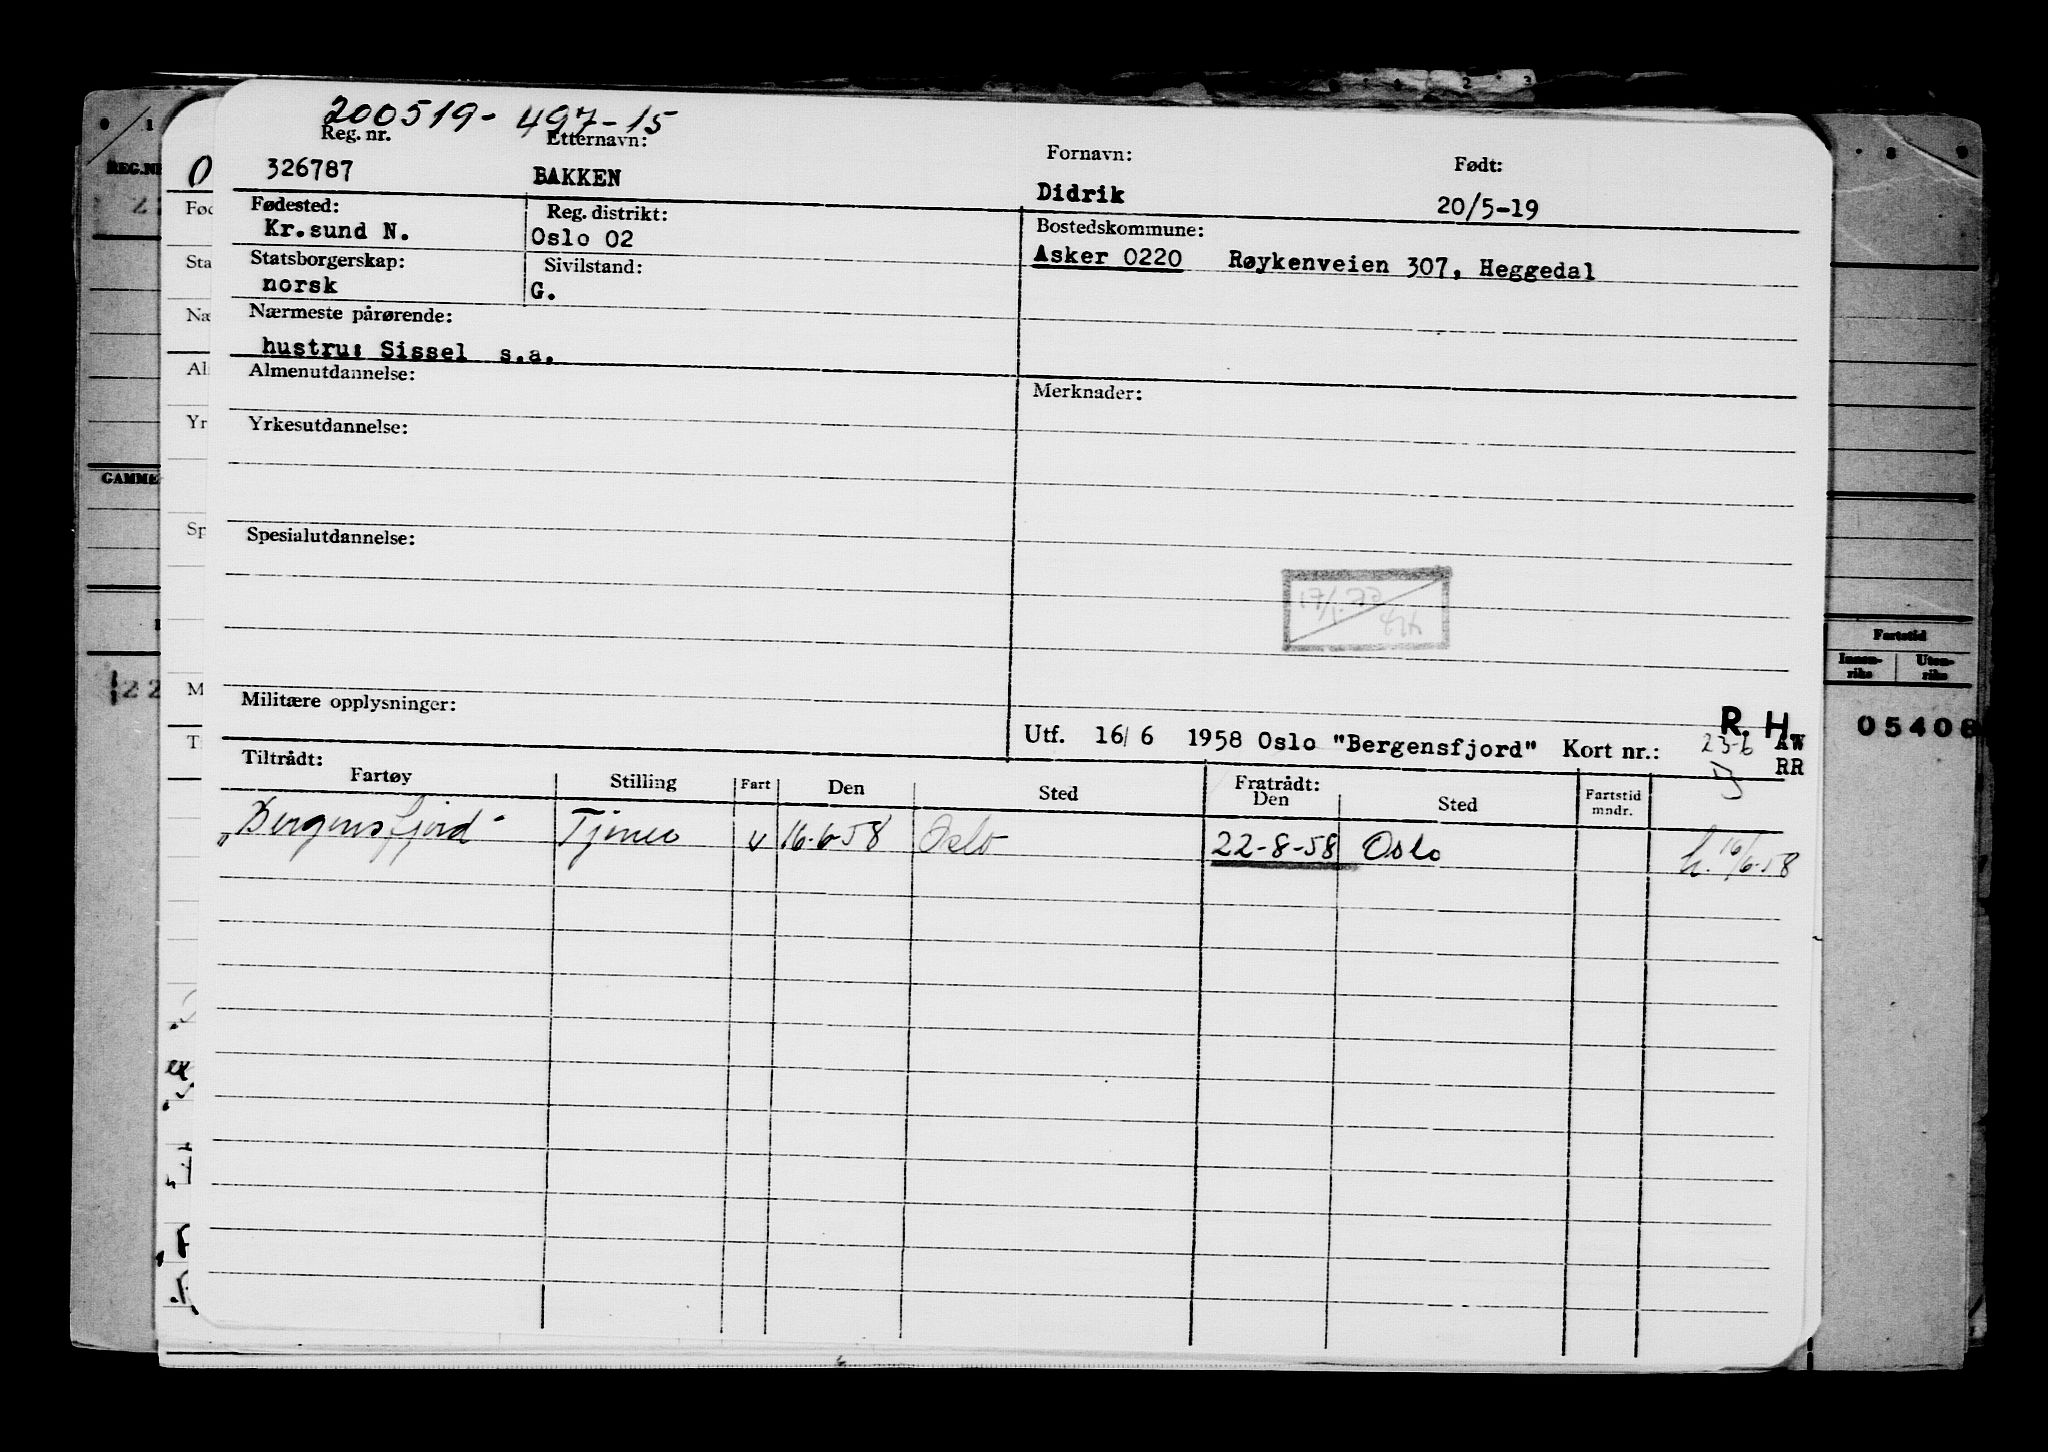 200519-497-15
Reg. nr. Etternavn: Fornavn: Født:
326787 BAKKEN Didrik 20/5-19
Fødested: Reg. distrikt: Bostedskommune:
Kr.sund N. Oslo 02 Asker 0220 Røykenveien 307, Heggedal
Statsborgerskap: Sivilstand:
norsk G.
Nærmeste pårørende:
hustru: Sissel s.a.
Almenutdannelse: Merknader:
Yrkesutdannelse:
Spesialutdannelse:
Militære opplysninger:
R. H.
Utf. 16/ 6 1958 Oslo "Bergensfjord" Kort nr.: 23-6 AW
RR
Tiltrådt: Fratrådt:
Fartøy Stilling Fart Den Sted Den Sted Fartstid mndr.
„Bergensfjord" v 16-6-58 Oslo 22-8-58 Oslo h. 16/6-58
REG.NR
GAMME
Fartstid
Innen-riks Uten-riks
05408